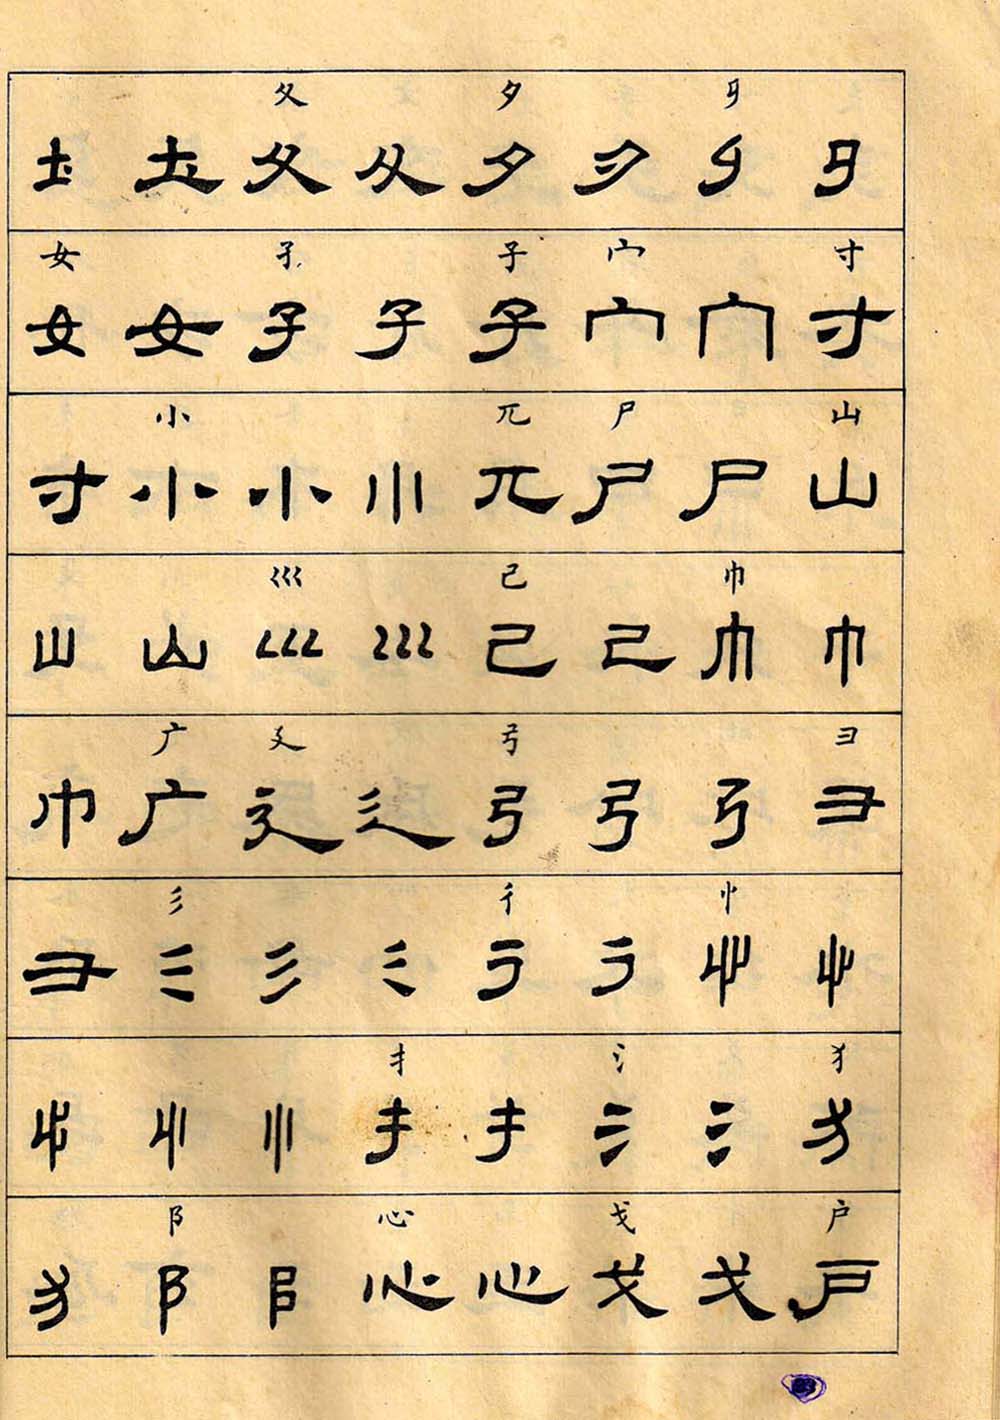 夂 夕 𤕰
土 土 夂 夂 夕 夕
女 孑 子 宀 寸
女 女 子 子 子 宀 宀 寸
小 兀 尸 山
寸 小 小 小 兀 尸 尸 山
巛 己 巾
山 山 巛 巛 己 己 巾 巾
广 廴 弓 彐
巾 广 廴 廴 弓 弓 弓 彐
彡 彳 忄
彐 彡 彡 彡 彳 彳 忄 忄
扌 氵 犭
忄 忄 忄 扌 扌 氵 氵 犭
阝 心 戈 户
犭 阝 阝 心 心 戈 戈 户